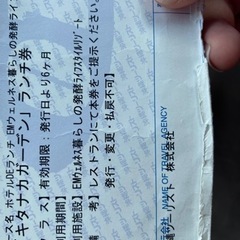 ース名 ホテルDEランチ EMウェルネス暮らしの発酵ライ
キタナカガーデン」ランチ券
ラス】有効期限：発行日より6ヶ月
利用期間】
利用施設】EMウェルネス暮らしの発酵ライフスタイルリゾート
考】レストランにて本券をご提示ください。
発行・変更・払戻不可】
NAME OF TRAVEL AGENCY
ツーリスト 株式会社